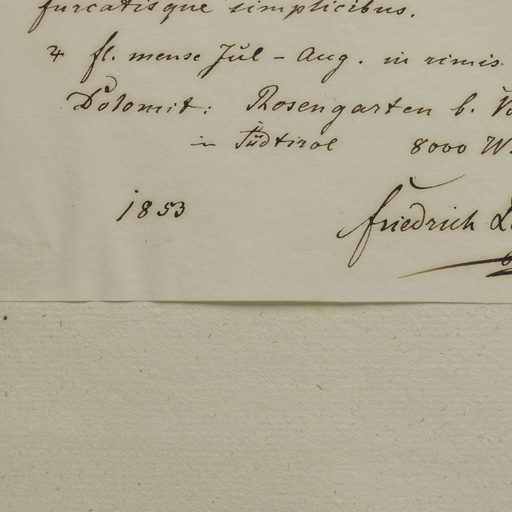 furcatisque simplicibus.
♃ fl. mense Jul - Aug. in rimis
Dolomit: Rosengarten b.
in Südtirol 8000 W.
1853
Friedrich